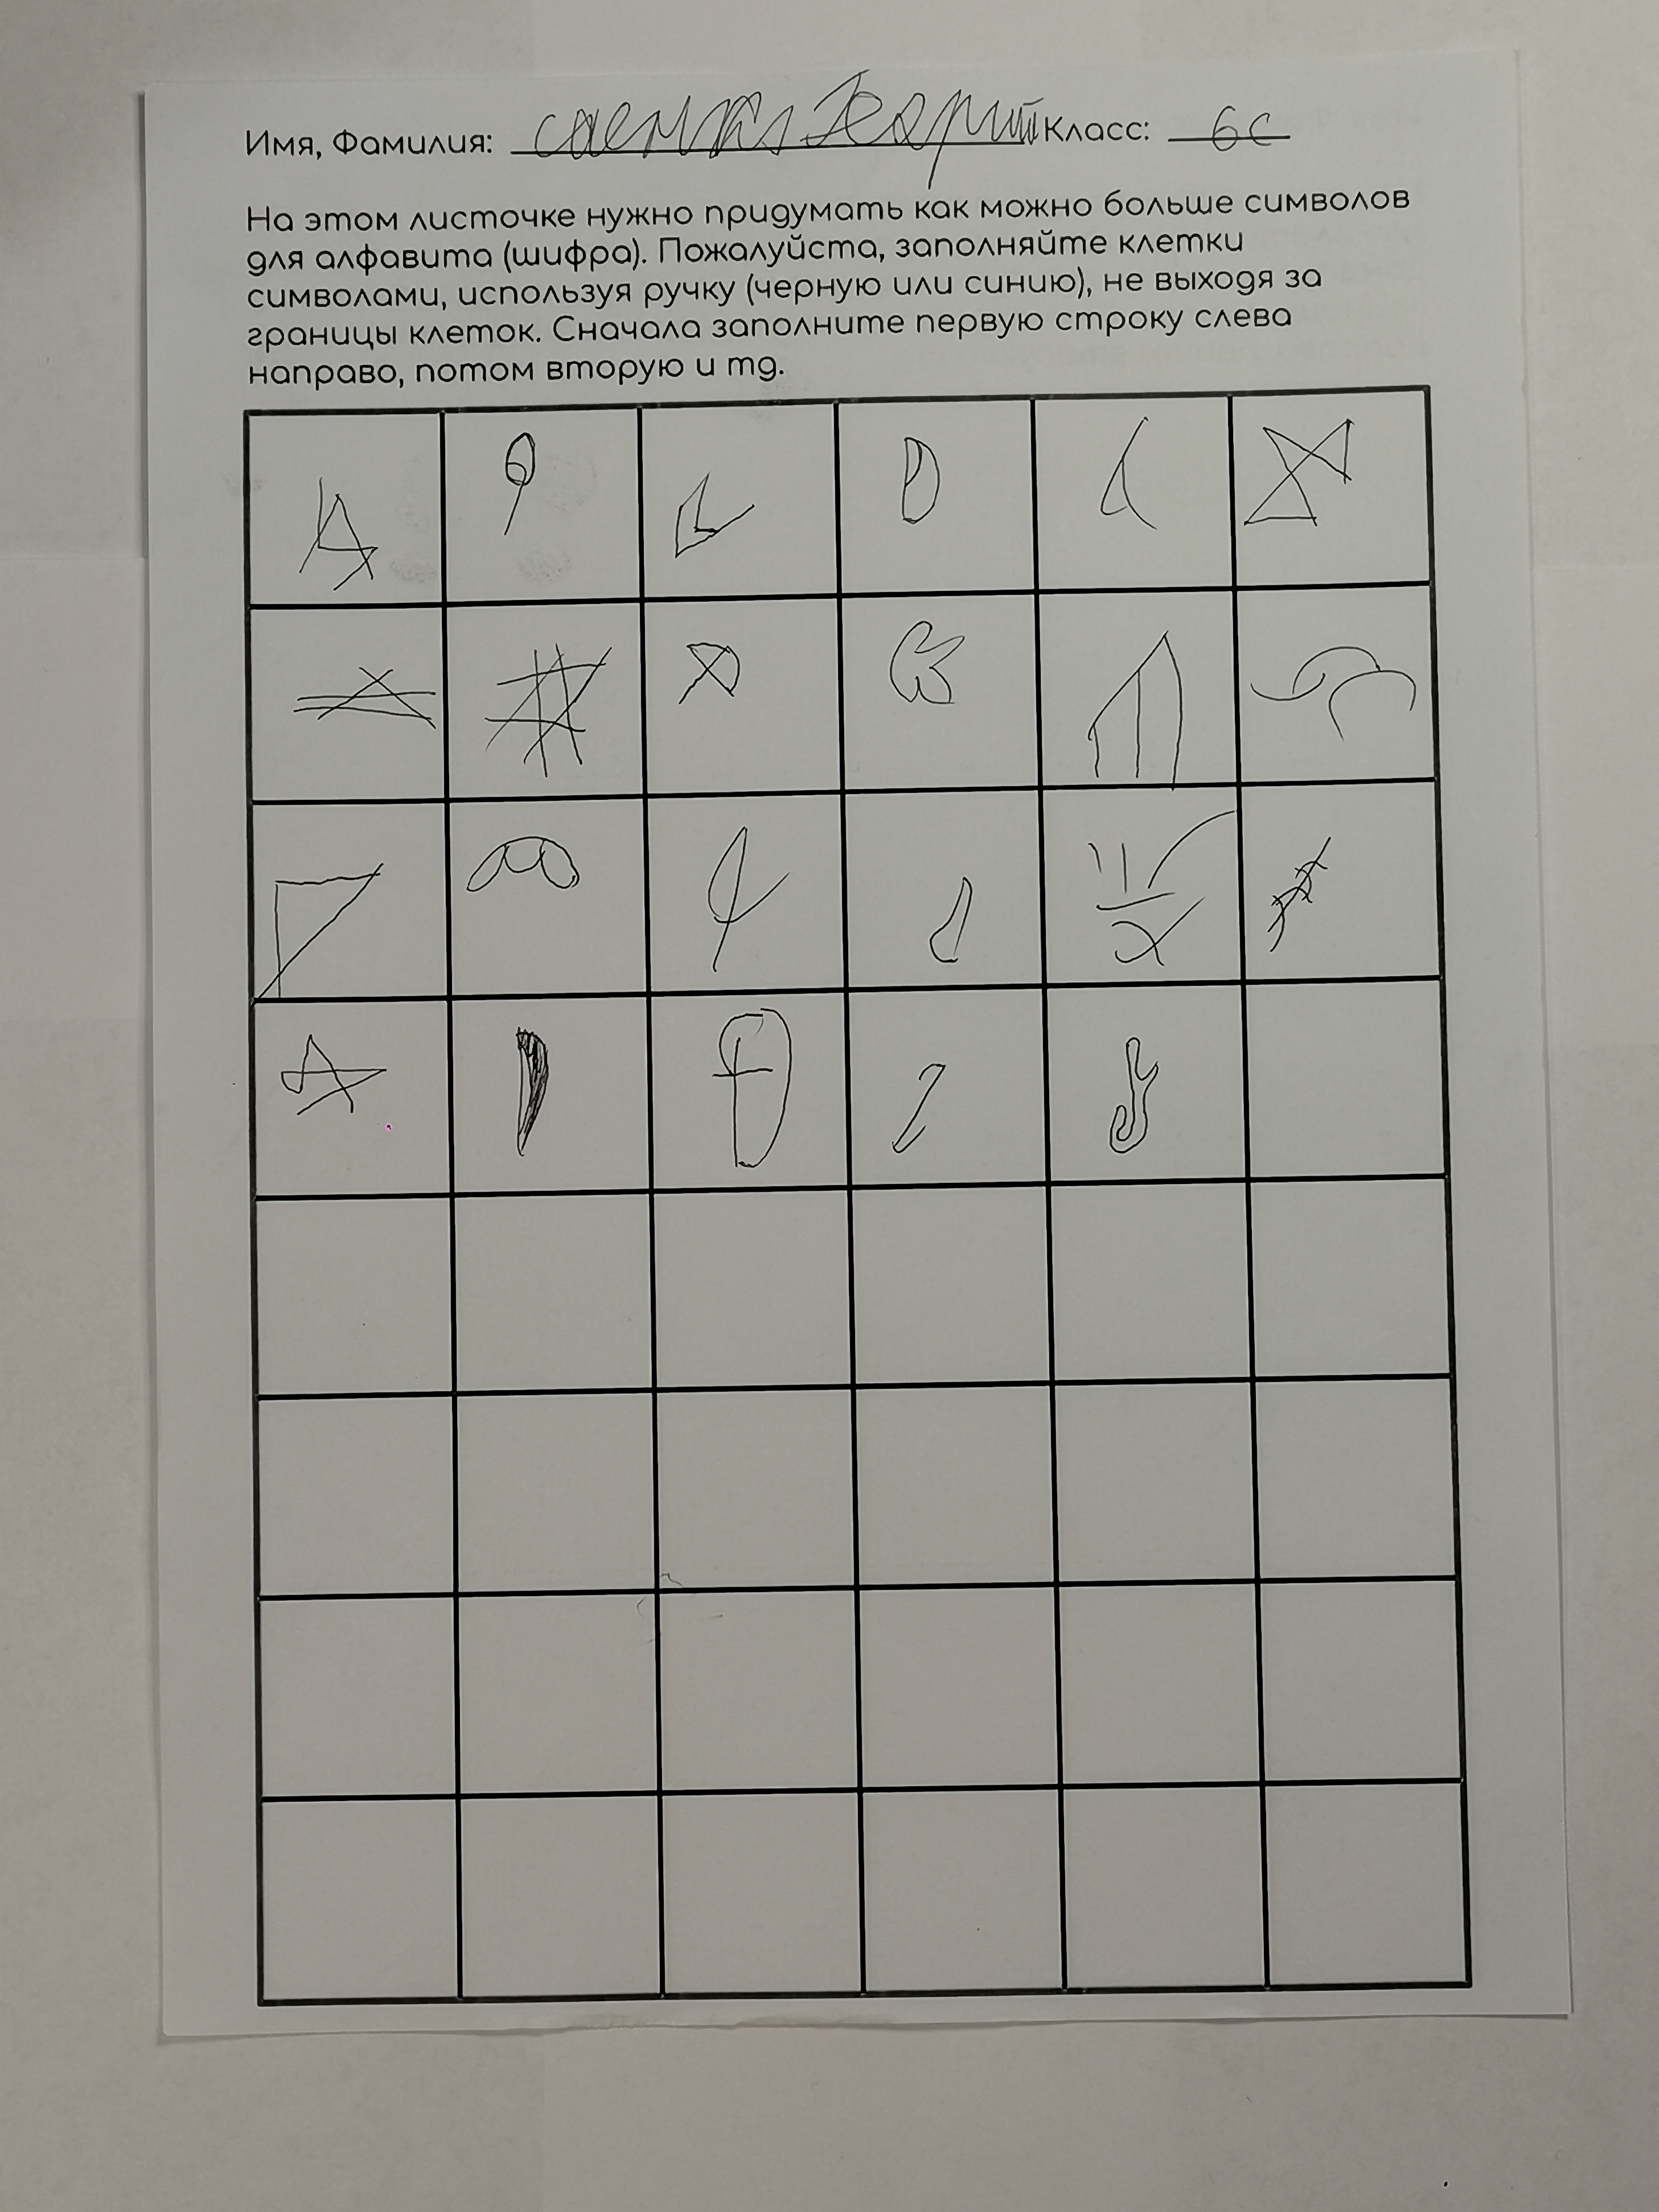 Имя, Фамилия: Класс: 6С
На этом листочке нужно придумать как можно больше символов
для алфавита (шифра). Пожалуйста, заполняйте клетки
символами, используя ручку (черную или синию), не выходя за
границы клеток. Сначала заполните первую строку слева
направо, потом вторую и тд.